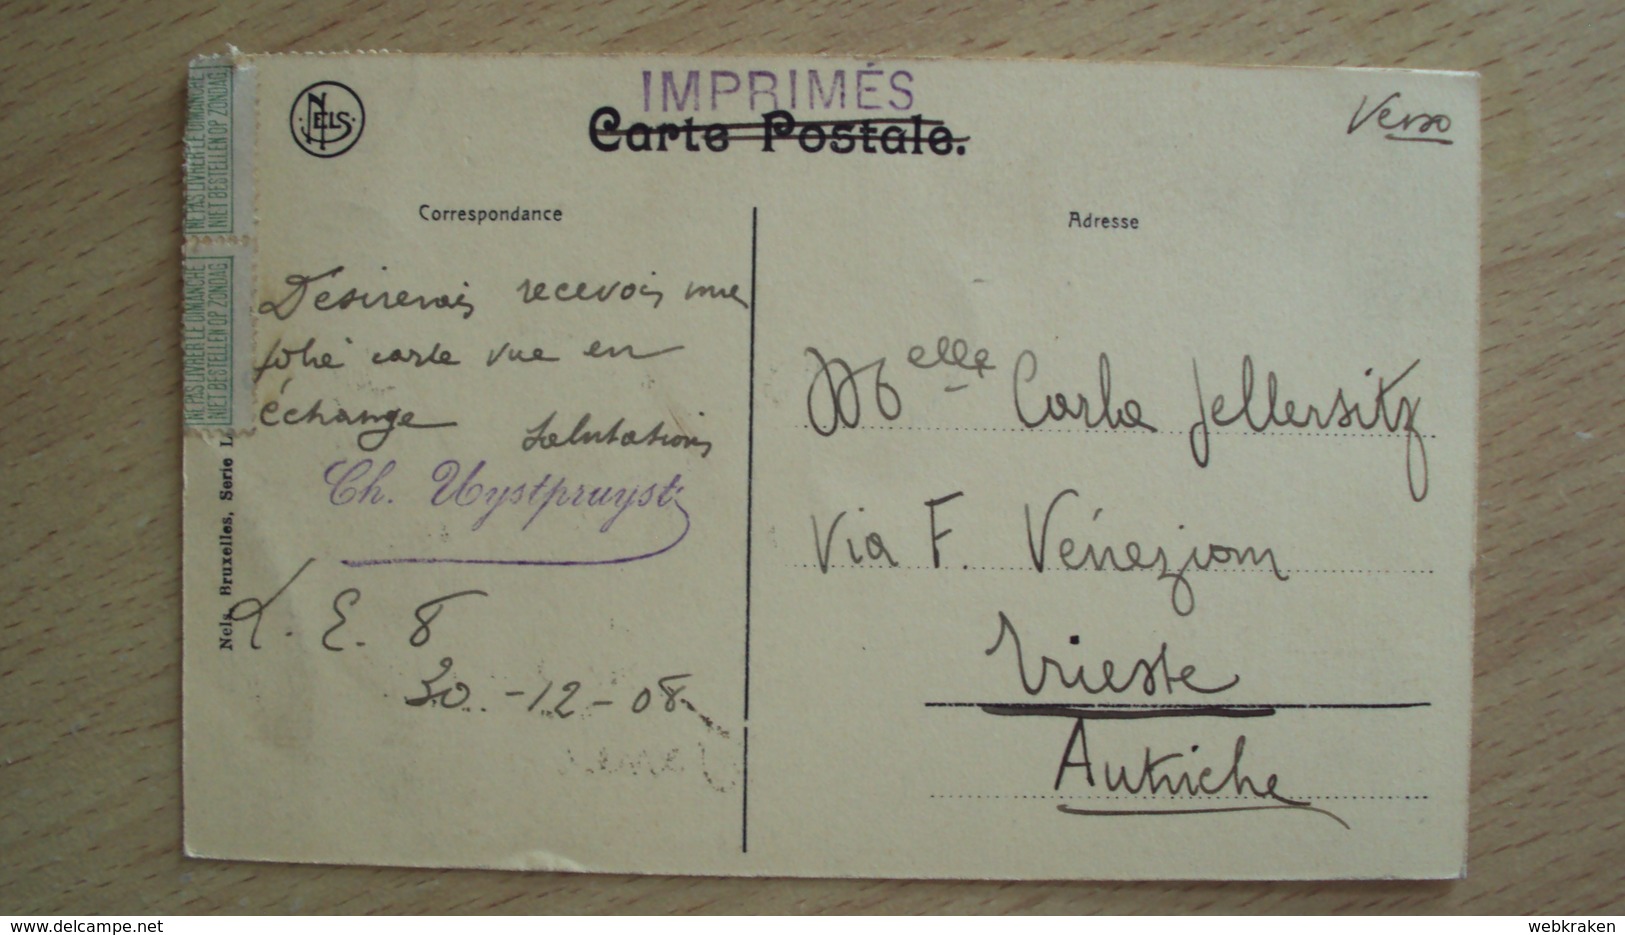 NELS
IMPRIMÉS
Carte Postale.
Verso
NE PAS LIVRER LE DIMANCHE
NIET BESTELLEN OP ZONDAG
NE PAS LIVRER LE DIMANCHE
NIET BESTELLEN OP ZONDAG
Correspondance
Désirerais recevoir une
jolie carte vue en
échange Salutations
Ch. Uystpruyst
L. E. 8
30-12-08
Nels, Bruxelles, Serie
Adresse
Melle Carla Jellersitz
Via F. Véneziom
Trieste
Autriche
webkraken